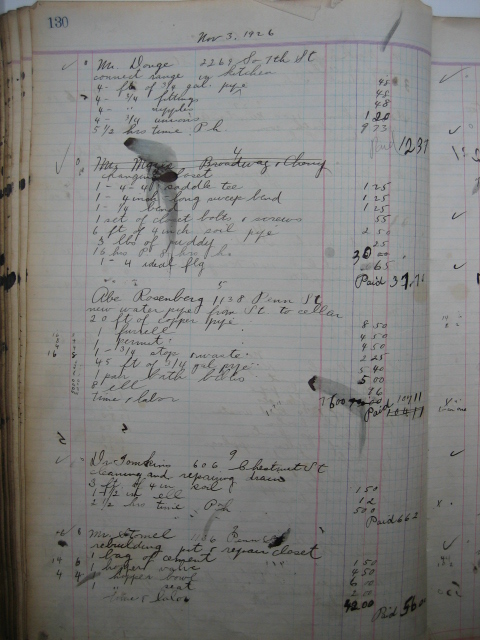 130
Nov 3, 1926
Mr. Donge 2269 So 7th St
connect range in kitchen
4- ft of 3/4 gal. pipe 48
4- 3/4 fittings 48
4- " nipples 48
4- 3/4 unions 1 20
5 1/2 hrs time P.h. 9 73
Paid 12 37
4
Broadway & Cherry
changing closet
1 - 4 - 4 saddle tee 1 25
1 - 4 inch long sweep bend 1 25
1 - 1/4 bend 1 25
1 set of closet bolts & screws 55
6 ft of 4 inch soil pipe 2 50
3 lbs of putty 25
16 hrs P & hrs h. 30 00
1 - 4 ideal flg 65
Paid 37.
5
Abe Rosenberg 1138 Penn St
new water pipe from St. to cellar
20 ft of copper pipe 8 50
1 ferrell 4 50
1 permit 4 50
1 - 3/4 stop & waste 2 25
45 ft of 3/4 gal pipe 5 40
1 pair bath bibbs 5 00
8 ell 76
time & labor
Paid
9
Dr. Tomkins 606 Chestnut St
cleaning and repairing drain
3 ft of 4 in soil 1 50
1 1/2 in ell 12
2 1/2 hrs time P&h 5 00
Paid 6 62
8
Mr. 1106 Penn St
rebuilding pit & repair closet
1 bag of cement 1 50
1 hoppers valve 4 50
1 hopper bowl 6 00
1 " seat 2 00
time & labor 42.00
Paid 56 00